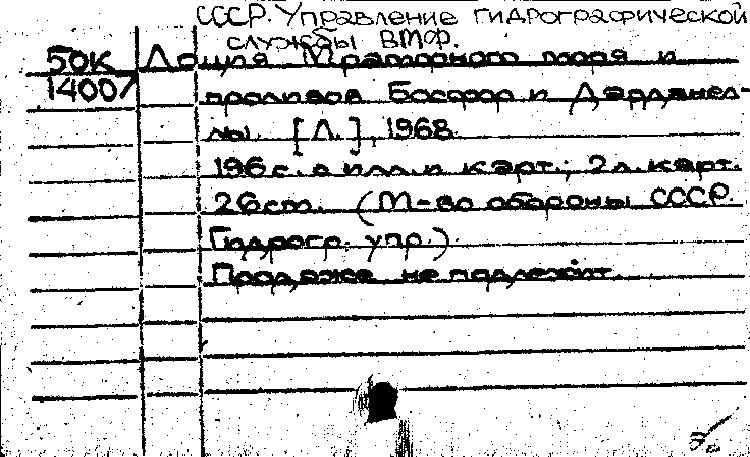 СССР. Управление гидрографической
службы ВМФ.
50К Лоция Мраморного моря и
14007 проливов Босфор и Дарданел-
лы. [Л.], 1968.
196 с. с илл. и карт.; 2 л. карт.
26 см. (М-во обороны СССР.
Гидрогр. упр.).
Продаже не подлежит.